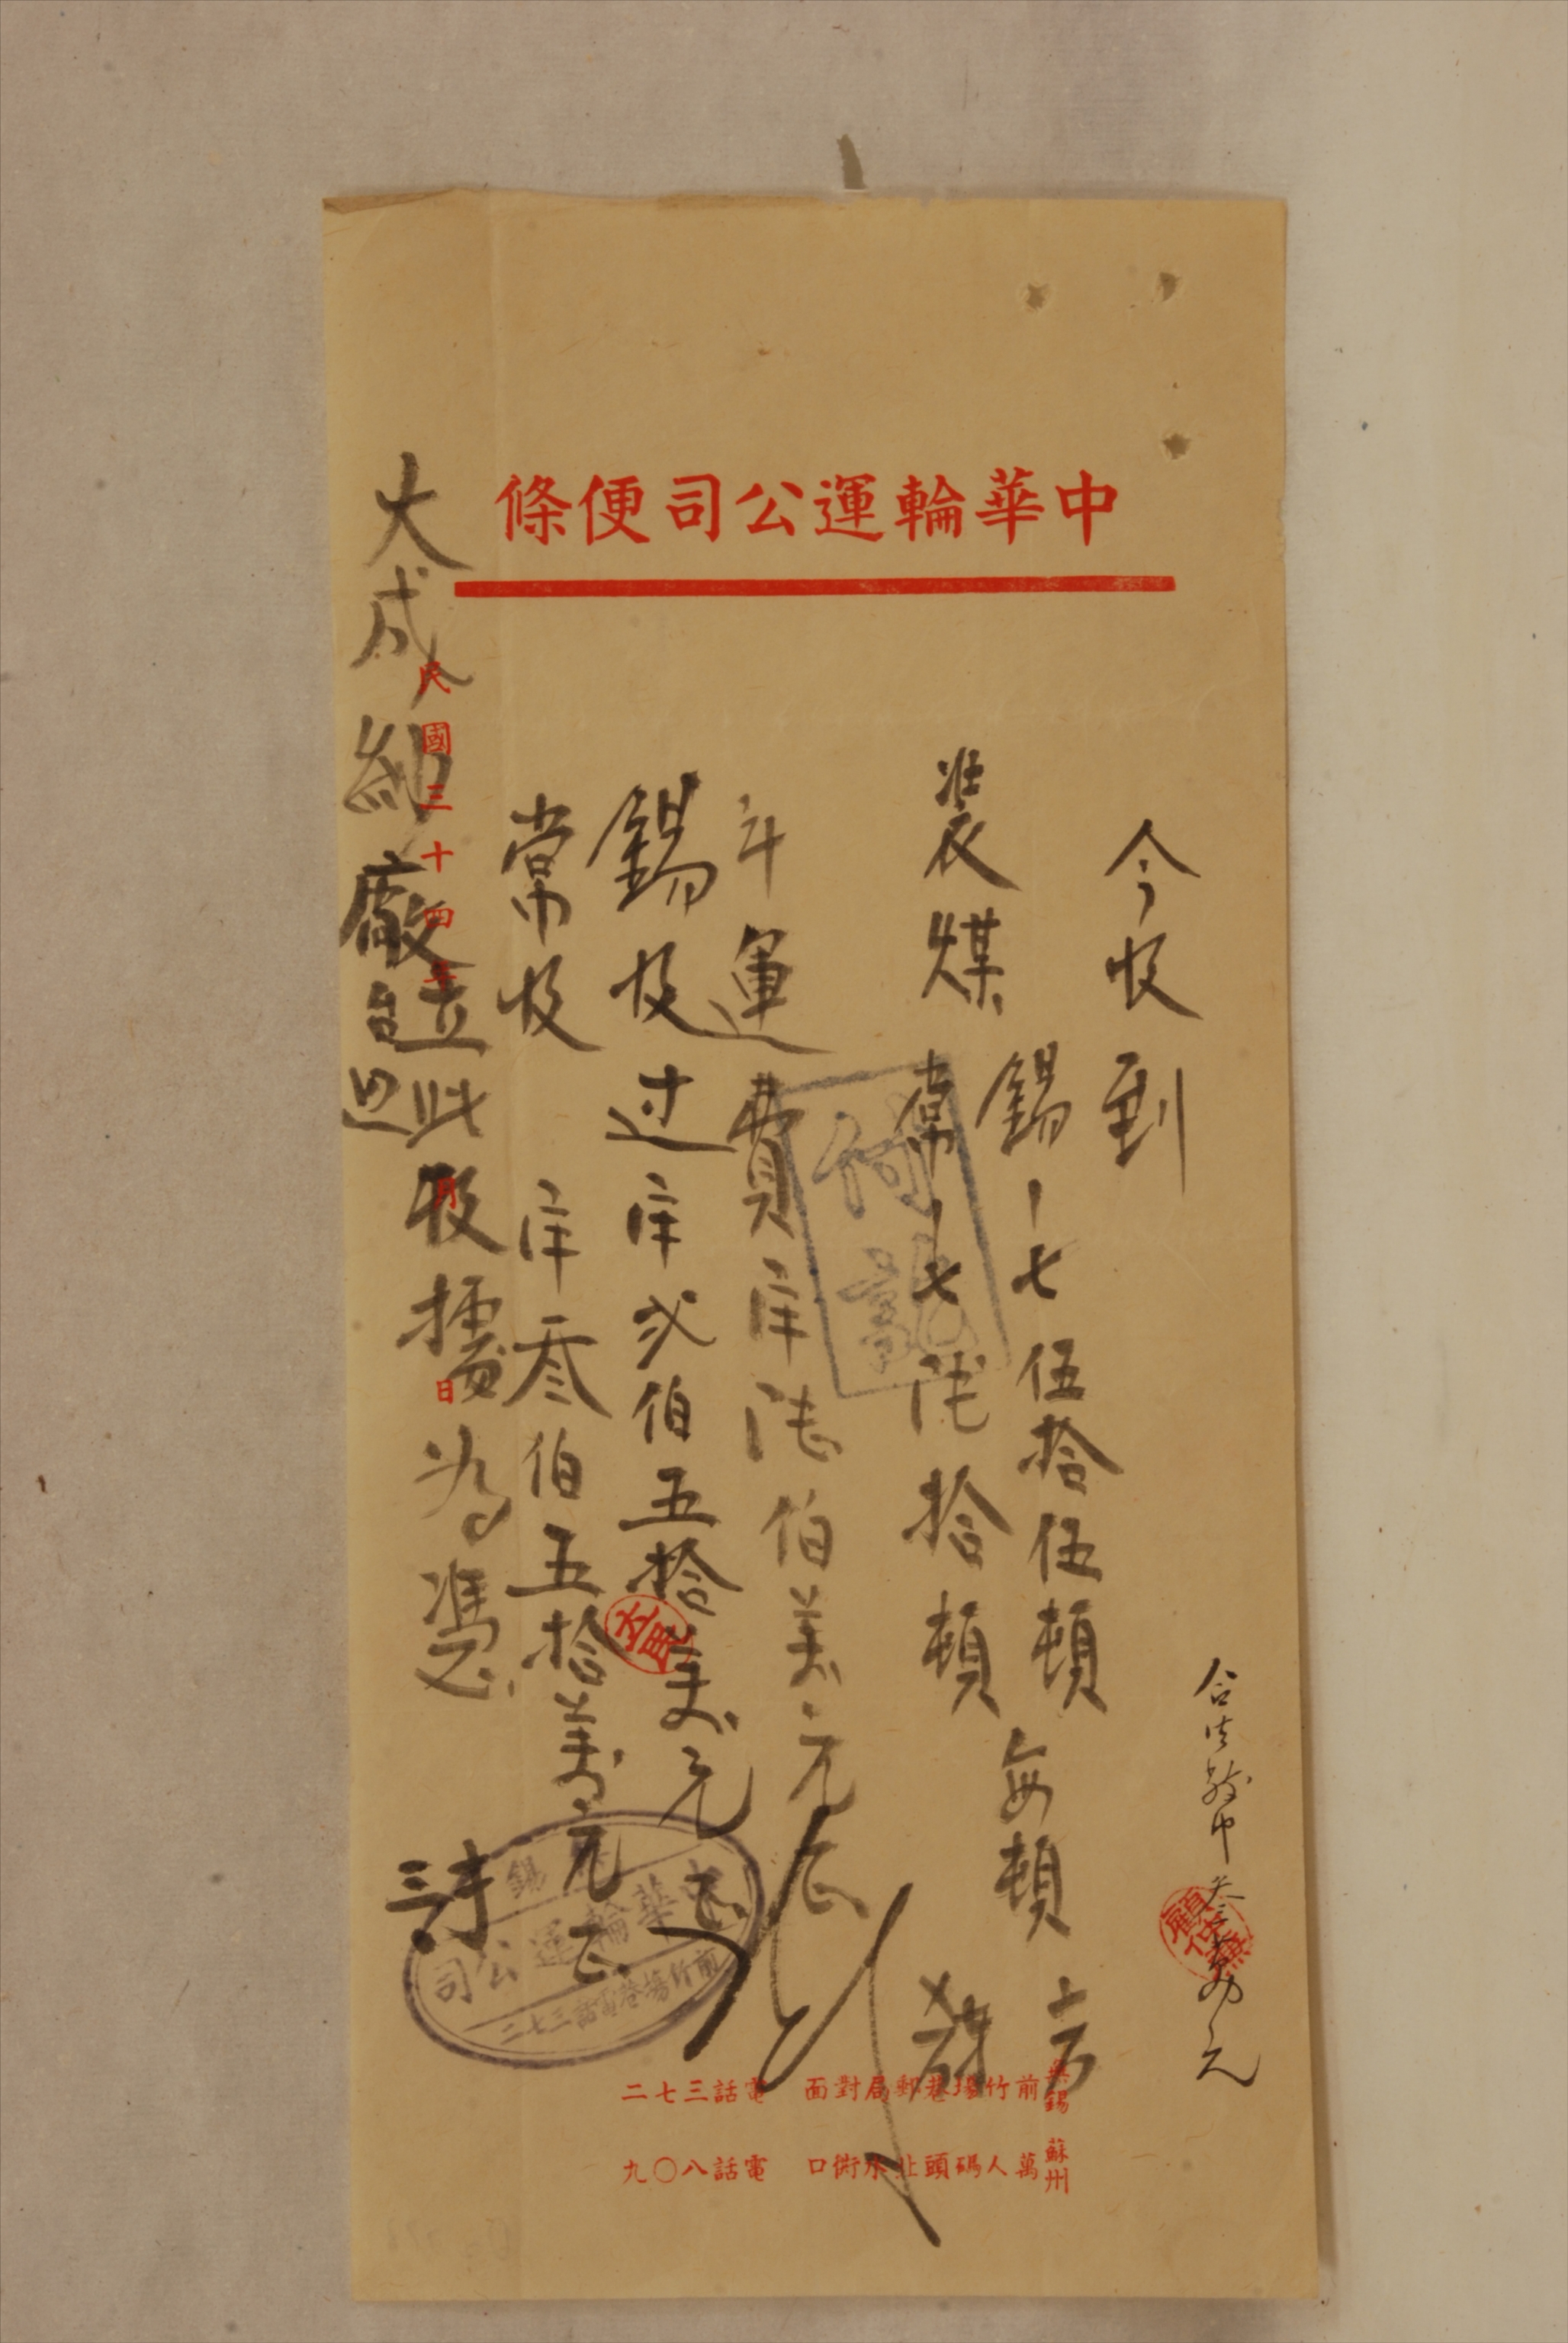 中華輪運公司便條
合法幣中叁萬元
今收到
錫 七 伍拾伍頓 每頓
裝煤 常 七 陸拾頓
計運費洋陸佰萬元正
錫收过洋弍佰五拾萬元正
常收洋叁佰五拾萬元正
此收據为憑
大成紗廠台
民國三十四年 月 日
付訖
顧
無錫
中華輪運公司
前竹場巷電話三七二
無錫 前竹場巷郵局對面 電話三七二
蘇州 萬人碼頭北水衖口 電話八〇九